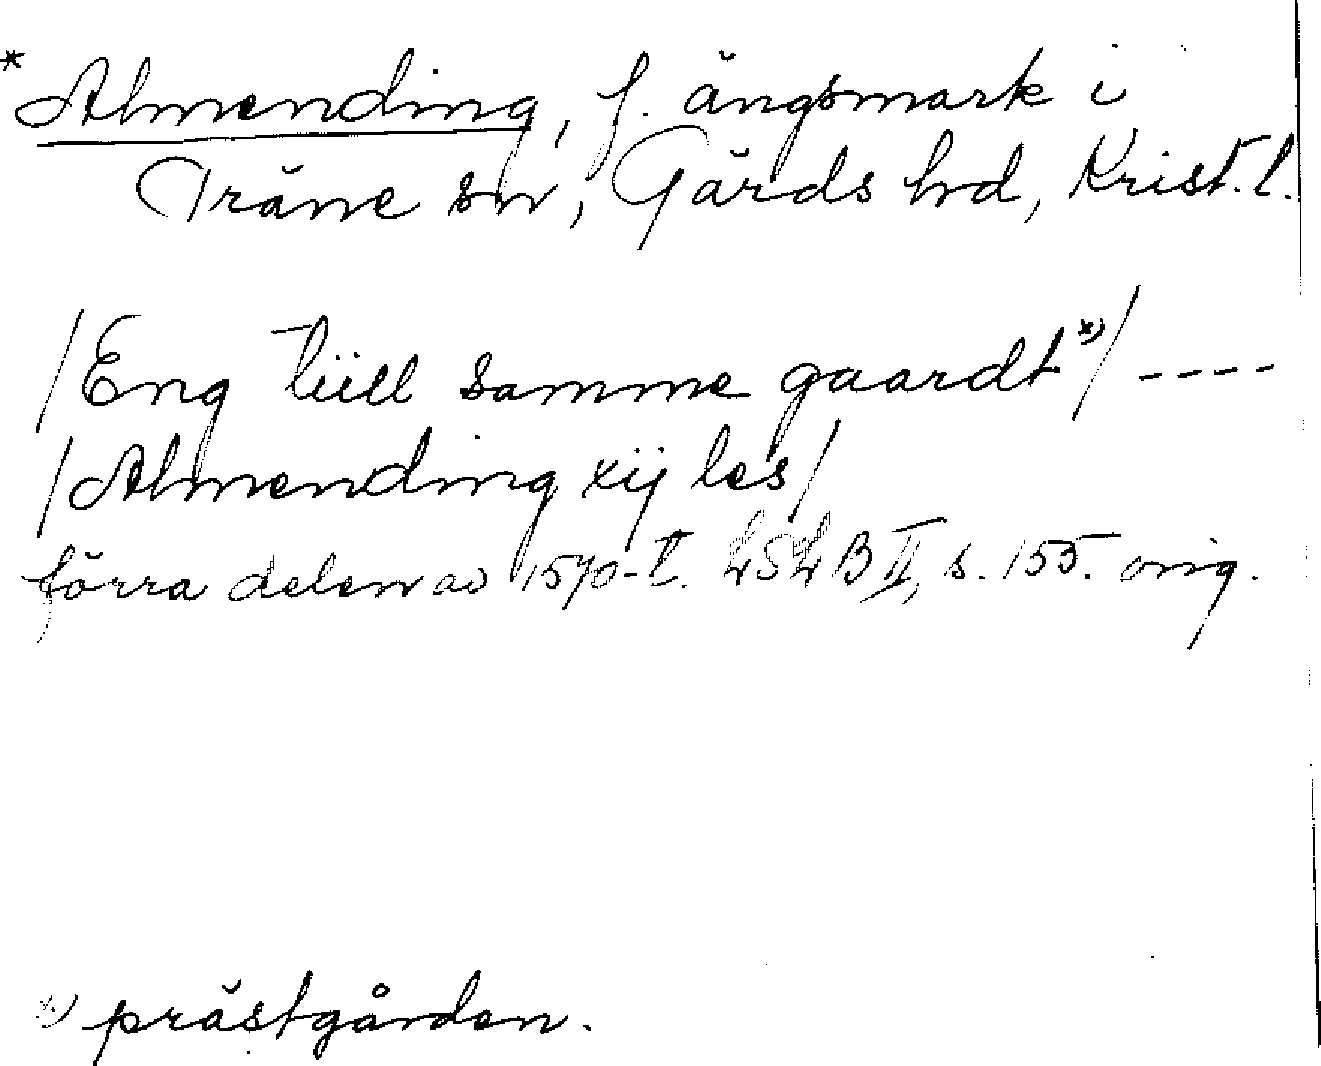 * Almending, f. ängsmark i
Träne sn, Gärds hd, Krist. l.
/Eng tiill samme gaardt *)/ ----
/Almending xij les/
förra delen av 1570-t. LSLB II, s. 155. orig.
*) prästgården.